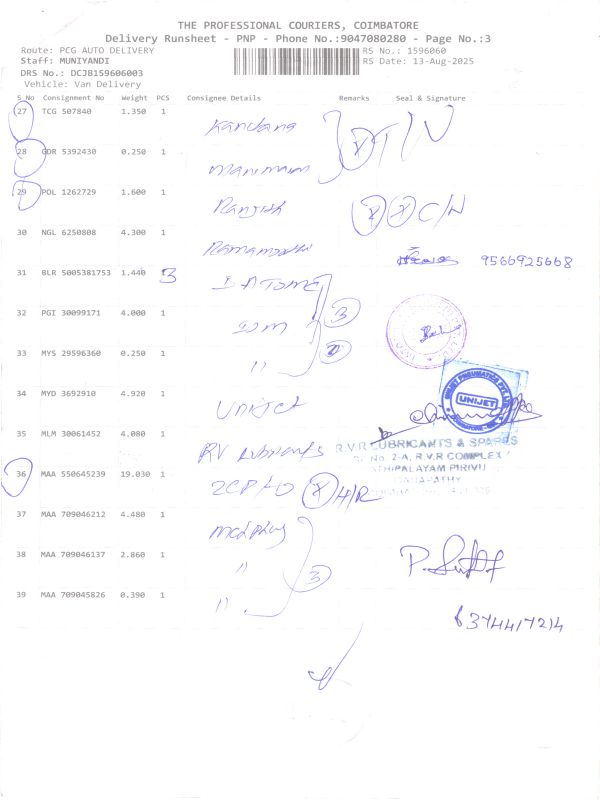 THE PROFESSIONAL COURIERS, COIMBATORE
Delivery Runsheet - PNP - Phone No.:9047080280 - Page No.:3
Route: PCG AUTO DELIVERY RS No.: 1596060
Staff: MUNIYANDI RS Date: 13-Aug-2025
DRS No.: DCJB159606003
Vehicle: Van Delivery
S_No Consignment No Weight PCS Consignee Details Remarks Seal & Signature
27 TCG 507840 1.350 1
28 GDR 5392430 0.250 1
29 POL 1262729 1.600 1 C/N
30 NGL 6250808 4.300 1 9566925668
31 BLR 5005381753 1.440 3
32 PGI 30099171 4.000 1 3
33 MYS 29596360 0.250 1 "
34 MYD 3692910 4.920 1 Unijet UNIJET
35 MLM 30061452 4.080 1 RV Lubricants R.V.R LUBRICANTS & SPARES
S. No. 2-A, R.V.R COMPLEX
ATHIPALAYAM PIRIVU
GANAPATHY
36 MAA 550645239 19.030 1 H/R
37 MAA 709046212 4.480 1 medplus
38 MAA 709046137 2.860 1 " 3
39 MAA 709045826 0.390 1 "
6374417214